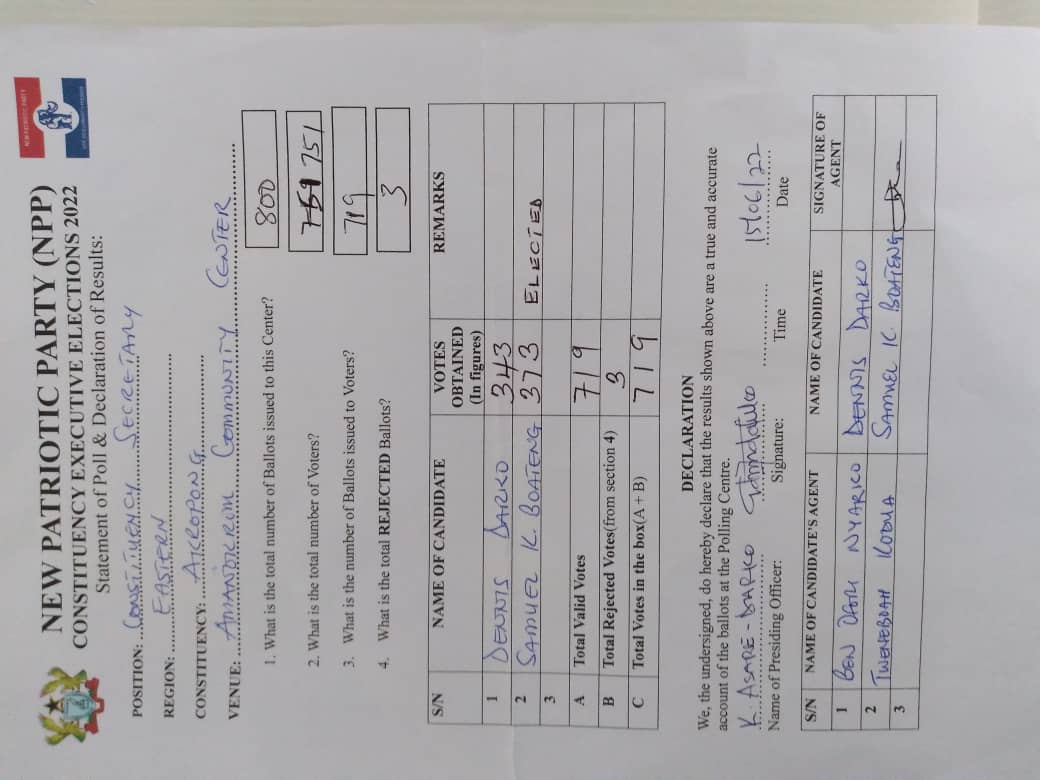 NEW PATRIOTIC PARTY (NPP)
CONSTITUENCY EXECUTIVE ELECTIONS 2022
Statement of Poll & Declaration of Results:
NEW PATRIOTIC PARTY
POSITION: CONSTITUENCY SECRETARY
REGION: EASTERN
CONSTITUENCY: AKROPONG
VENUE: AMANOKROM COMMUNITY CENTER
1. What is the total number of Ballots issued to this Center? 800
2. What is the total number of Voters? 751
3. What is the number of Ballots issued to Voters? 719
4. What is the total REJECTED Ballots? 3
S/N NAME OF CANDIDATE VOTES OBTAINED (In figures) REMARKS
1 DENNIS DARKO 343
2 SAMUEL K. BOATENG 373 ELECTED
3
A Total Valid Votes 719
B Total Rejected Votes(from section 4) 3
C Total Votes in the box(A + B) 719
DECLARATION
We, the undersigned, do hereby declare that the results shown above are a true and accurate
account of the ballots at the Polling Centre.
K. ASARE-DARKO 15/06/22
Name of Presiding Officer: Signature: Time Date
S/N NAME OF CANDIDATE'S AGENT NAME OF CANDIDATE SIGNATURE OF AGENT
1 BEN NYARKO DENNIS DARKO
2 TWENEBOAH KODUA SAMUEL K. BOATENG
3